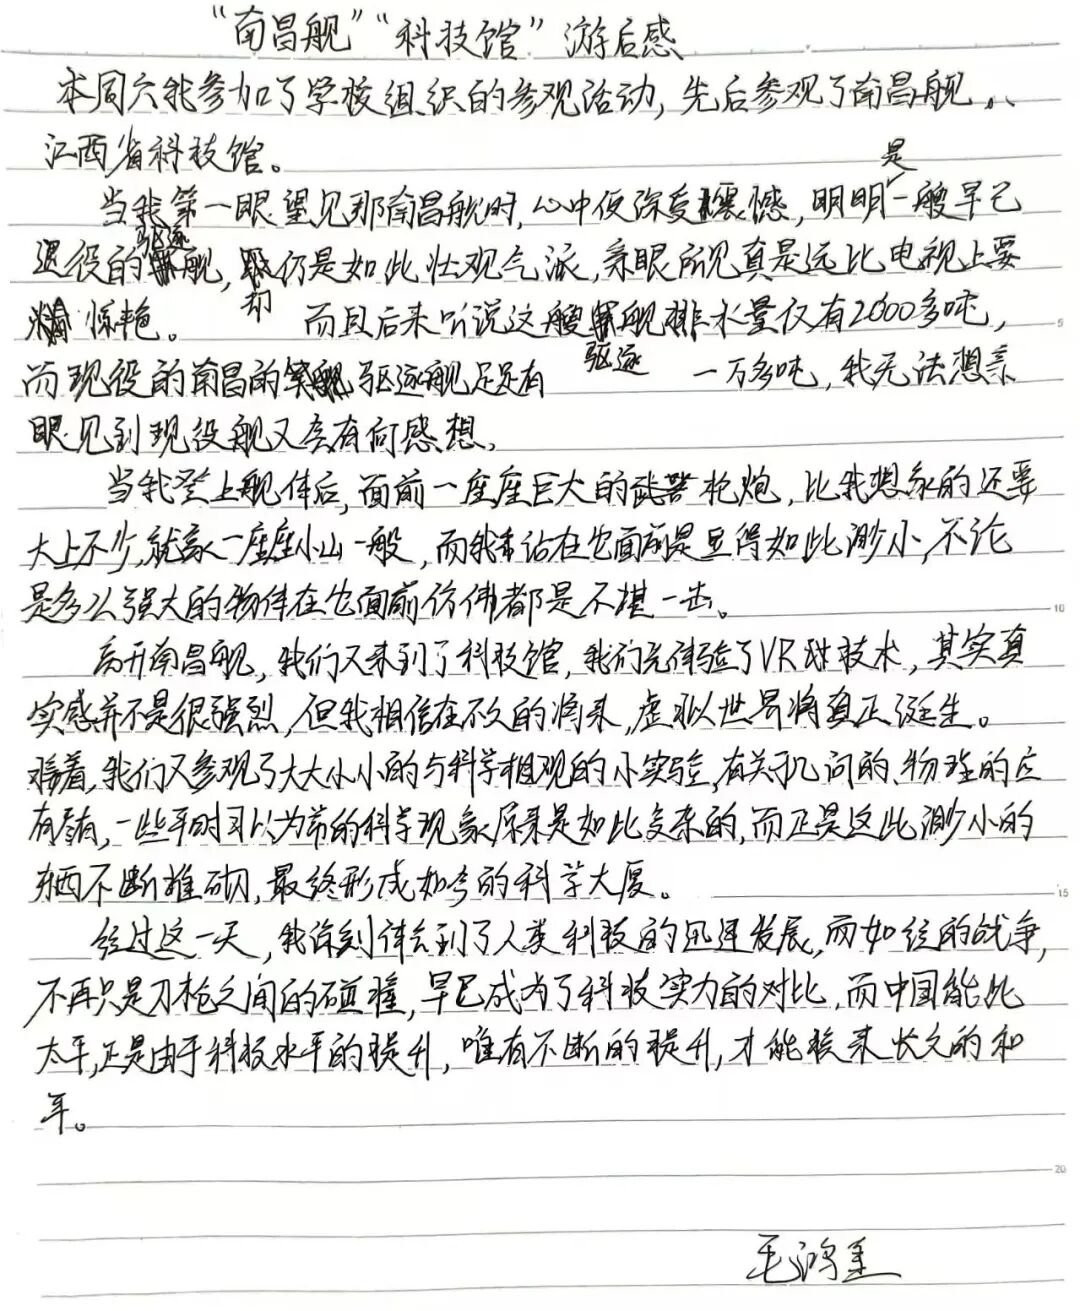 “南昌舰”“科技馆”游后感
本周六我参加了学校组织的参观活动，先后参观了南昌舰、
江西省科技馆。
是
当我第一眼望见那南昌舰时，心中便深受震憾，明明一艘早已
驱逐
退役的舰，仍是如此壮观气派，亲眼所见真是远比电视上要
却
惊艳。而且后来听说这艘舰排水量仅有2000多吨，
驱逐
而现役的南昌的驱逐舰足足有一万多吨，我无法想亲
眼见到现役舰又会有何感想，
当我登上舰体后，面前一座座巨大的武器枪炮，比我想象的还要
大上不少，就像一座座小山一般，而我站在它面前是显得如此渺小，不论
是多么强大的物体在它面前仿佛都是不堪一击。
离开南昌舰，我们又来到了科技馆，我们先体验了VR技术，其实真
实感并不是很强烈，但我相信在不久的将来，虚拟世界将真正诞生。
接着，我们又参观了大大小小的与科学相观的小实验，有关于几何的、物理的应
有尽有，一些平时习以为常的科学现象原来是如此复杂的，而正是这此渺小的
东西不断堆砌，最终形成如今的科学大厦。
经过这一天，我深刻体会到了人类科技的迅速发展，而如今的战争，
不再只是刀枪之间的碰撞，早已成为了科技实力的对比，而中国能此
太平，正是由于科技水平的提升，唯有不断的提升，才能换来长久的和
平。
毛鸿